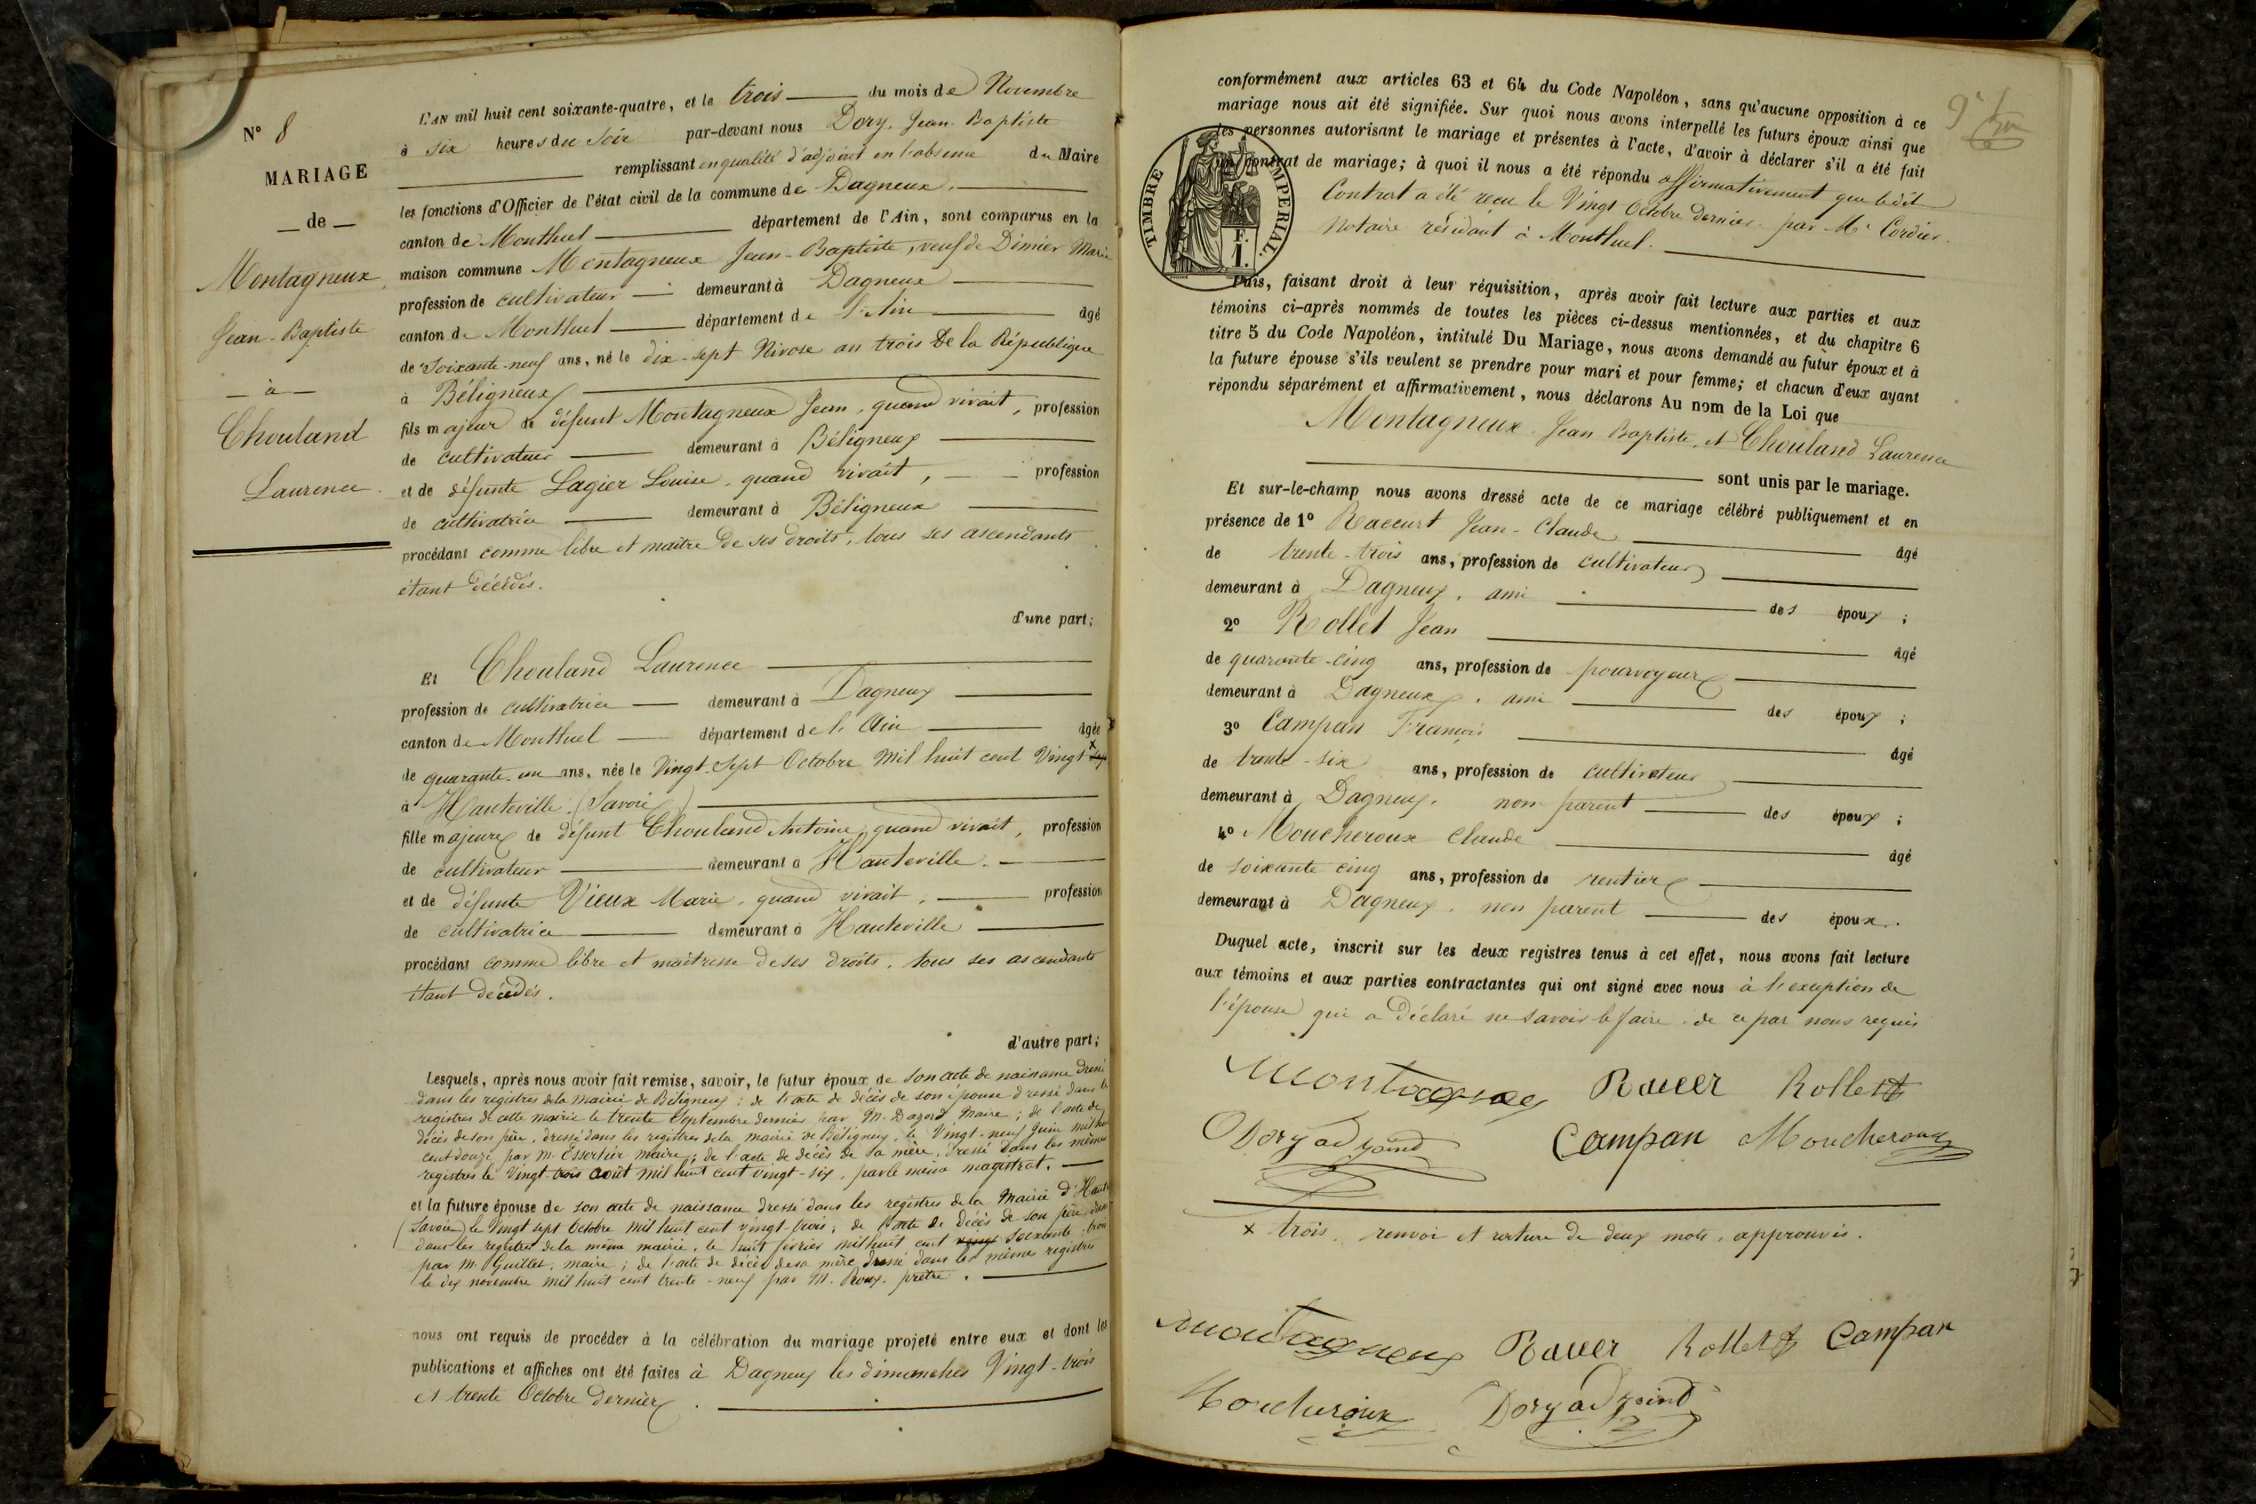 N° 8
MARIAGE
de
Montagneux
Jean-Baptiste
à
Chouland
Laurence.
L'AN mil huit cent soixante-quatre, et le trois du mois de Novembre
à six heures du Soir par-devant nous Dory, Jean-Baptiste
remplissant en qualité d'adjoint en l'absence du Maire
les fonctions d'Officier de l'état civil de la commune de Dagneux.
canton de Montluel département de l'Ain, sont comparus en la
maison commune Montagneux Jean-Baptiste, veuf de Dimier Marie
profession de cultivateur demeurant à Dagneux
canton de Montluel département de l'Ain âgé
de Soixante-neuf ans, né le dix-sept Nivose an trois de la République
à Béligneux
fils majeur de défunt Montagneux Jean, quand vivait, profession
de cultivateur demeurant à Béligneux
et de défunte Lagier Louise, quand vivait, profession
de cultivatrice demeurant à Béligneux
procédant comme libre et maître de ses droits, tous ses ascendants
étant décédés.
d'une part;
Et Chouland Laurence
profession de cultivatrice demeurant à Dagneux
canton de Montluel département de l'Ain âgée
de quarante-un ans, née le Vingt-Sept Octobre mil huit cent Vingt x
à Hauteville (Savoie)
fille majeure de défunt Chouland Antoine, quand vivait, profession
de cultivateur demeurant à Hauteville.
et de défunte Vieux Marie, quand vivait, profession
de cultivatrice demeurant à Hauteville
procédant comme libre et maîtresse de ses droits, tous ses ascendants
étant décédés.
d'autre part;
Lesquels, après nous avoir fait remise, savoir, le futur époux de son acte de naissance dressé
dans les registres de la mairie de Béligneux; de l'acte de décès de son épouse dressé dans les
registres de cette mairie le trente Septembre dernier par M. Dagord Maire; de l'acte de
décès de son père, dressé dans les registres de la mairie de Béligneux, le Vingt-neuf Juin mil huit
cent douze par M. Essertier maire; de l'acte de décès de sa mère, dressé dans les mêmes
registres le Vingt-trois août mil huit cent vingt-six, par le même magistrat.
et la future épouse de son acte de naissance dressé dans les registres de la Mairie d'Haute
(Savoie) le Vingt sept Octobre mil huit cent vingt-trois; de l'acte de décès de son père dressé
dans les registres de la même mairie, le huit février mil huit cent soixante-trois
par M. Guillet, maire; de l'acte de décès de sa mère dressé dans les même registres
le dix novembre mil huit cent trente-neuf par M. Roux, prêtre.
nous ont requis de procéder à la célébration du mariage projeté entre eux et dont les
publications et affiches ont été faites à Dagneux les dimanches Vingt-trois
et trente Octobre dernier.
9e
TIMBRE IMPERIAL.
F.
1.
conformément aux articles 63 et 64 du Code Napoléon, sans qu'aucune opposition à ce
mariage nous ait été signifiée. Sur quoi nous avons interpellé les futurs époux ainsi que
les personnes autorisant le mariage et présentes à l'acte, d'avoir à déclarer s'il a été fait
un contrat de mariage; à quoi il nous a été répondu affirmativement que ledit
Contrat a été reçu le Vingt Octobre dernier par Me Cordier.
Notaire résidant à Montluel.
Puis, faisant droit à leur réquisition, après avoir fait lecture aux parties et aux
témoins ci-après nommés de toutes les pièces ci-dessus mentionnées, et du chapitre 6
titre 5 du Code Napoléon, intitulé Du Mariage, nous avons demandé au futur époux et à
la future épouse s'ils veulent se prendre pour mari et pour femme; et chacun d'eux ayant
répondu séparément et affirmativement, nous déclarons Au nom de la Loi que
Montagneux Jean Baptiste, et Chouland Laurence
sont unis par le mariage.
Et sur-le-champ nous avons dressé acte de ce mariage célébré publiquement et en
présence de 1° Raccurt Jean-Claude âgé
de trente-trois ans, profession de cultivateur
demeurant à Dagneux, ami des époux;
2° Rollet Jean âgé
de quarante-cinq ans, profession de pourvoyeur
demeurant à Dagneux, ami des époux;
3° Campan François âgé
de trente-six ans, profession de cultivateur
demeurant à Dagneux, non parent des époux;
4° Moucheroux Claude âgé
de soixante cinq ans, profession de rentier
demeurant à Dagneux, non parent des époux.
Duquel acte, inscrit sur les deux registres tenus à cet effet, nous avons fait lecture
aux témoins et aux parties contractantes qui ont signé avec nous à l'exception de
l'épouse qui a déclaré ne savoir le faire de ce par nous requis
Montagneux Racer Rollet
Dory adjoint Campan Moucheroux
x trois, renvoi et rature de deux mots, approuvés.
Montagneux Racer Rollet Campan
Moucheroux Dory adjoint